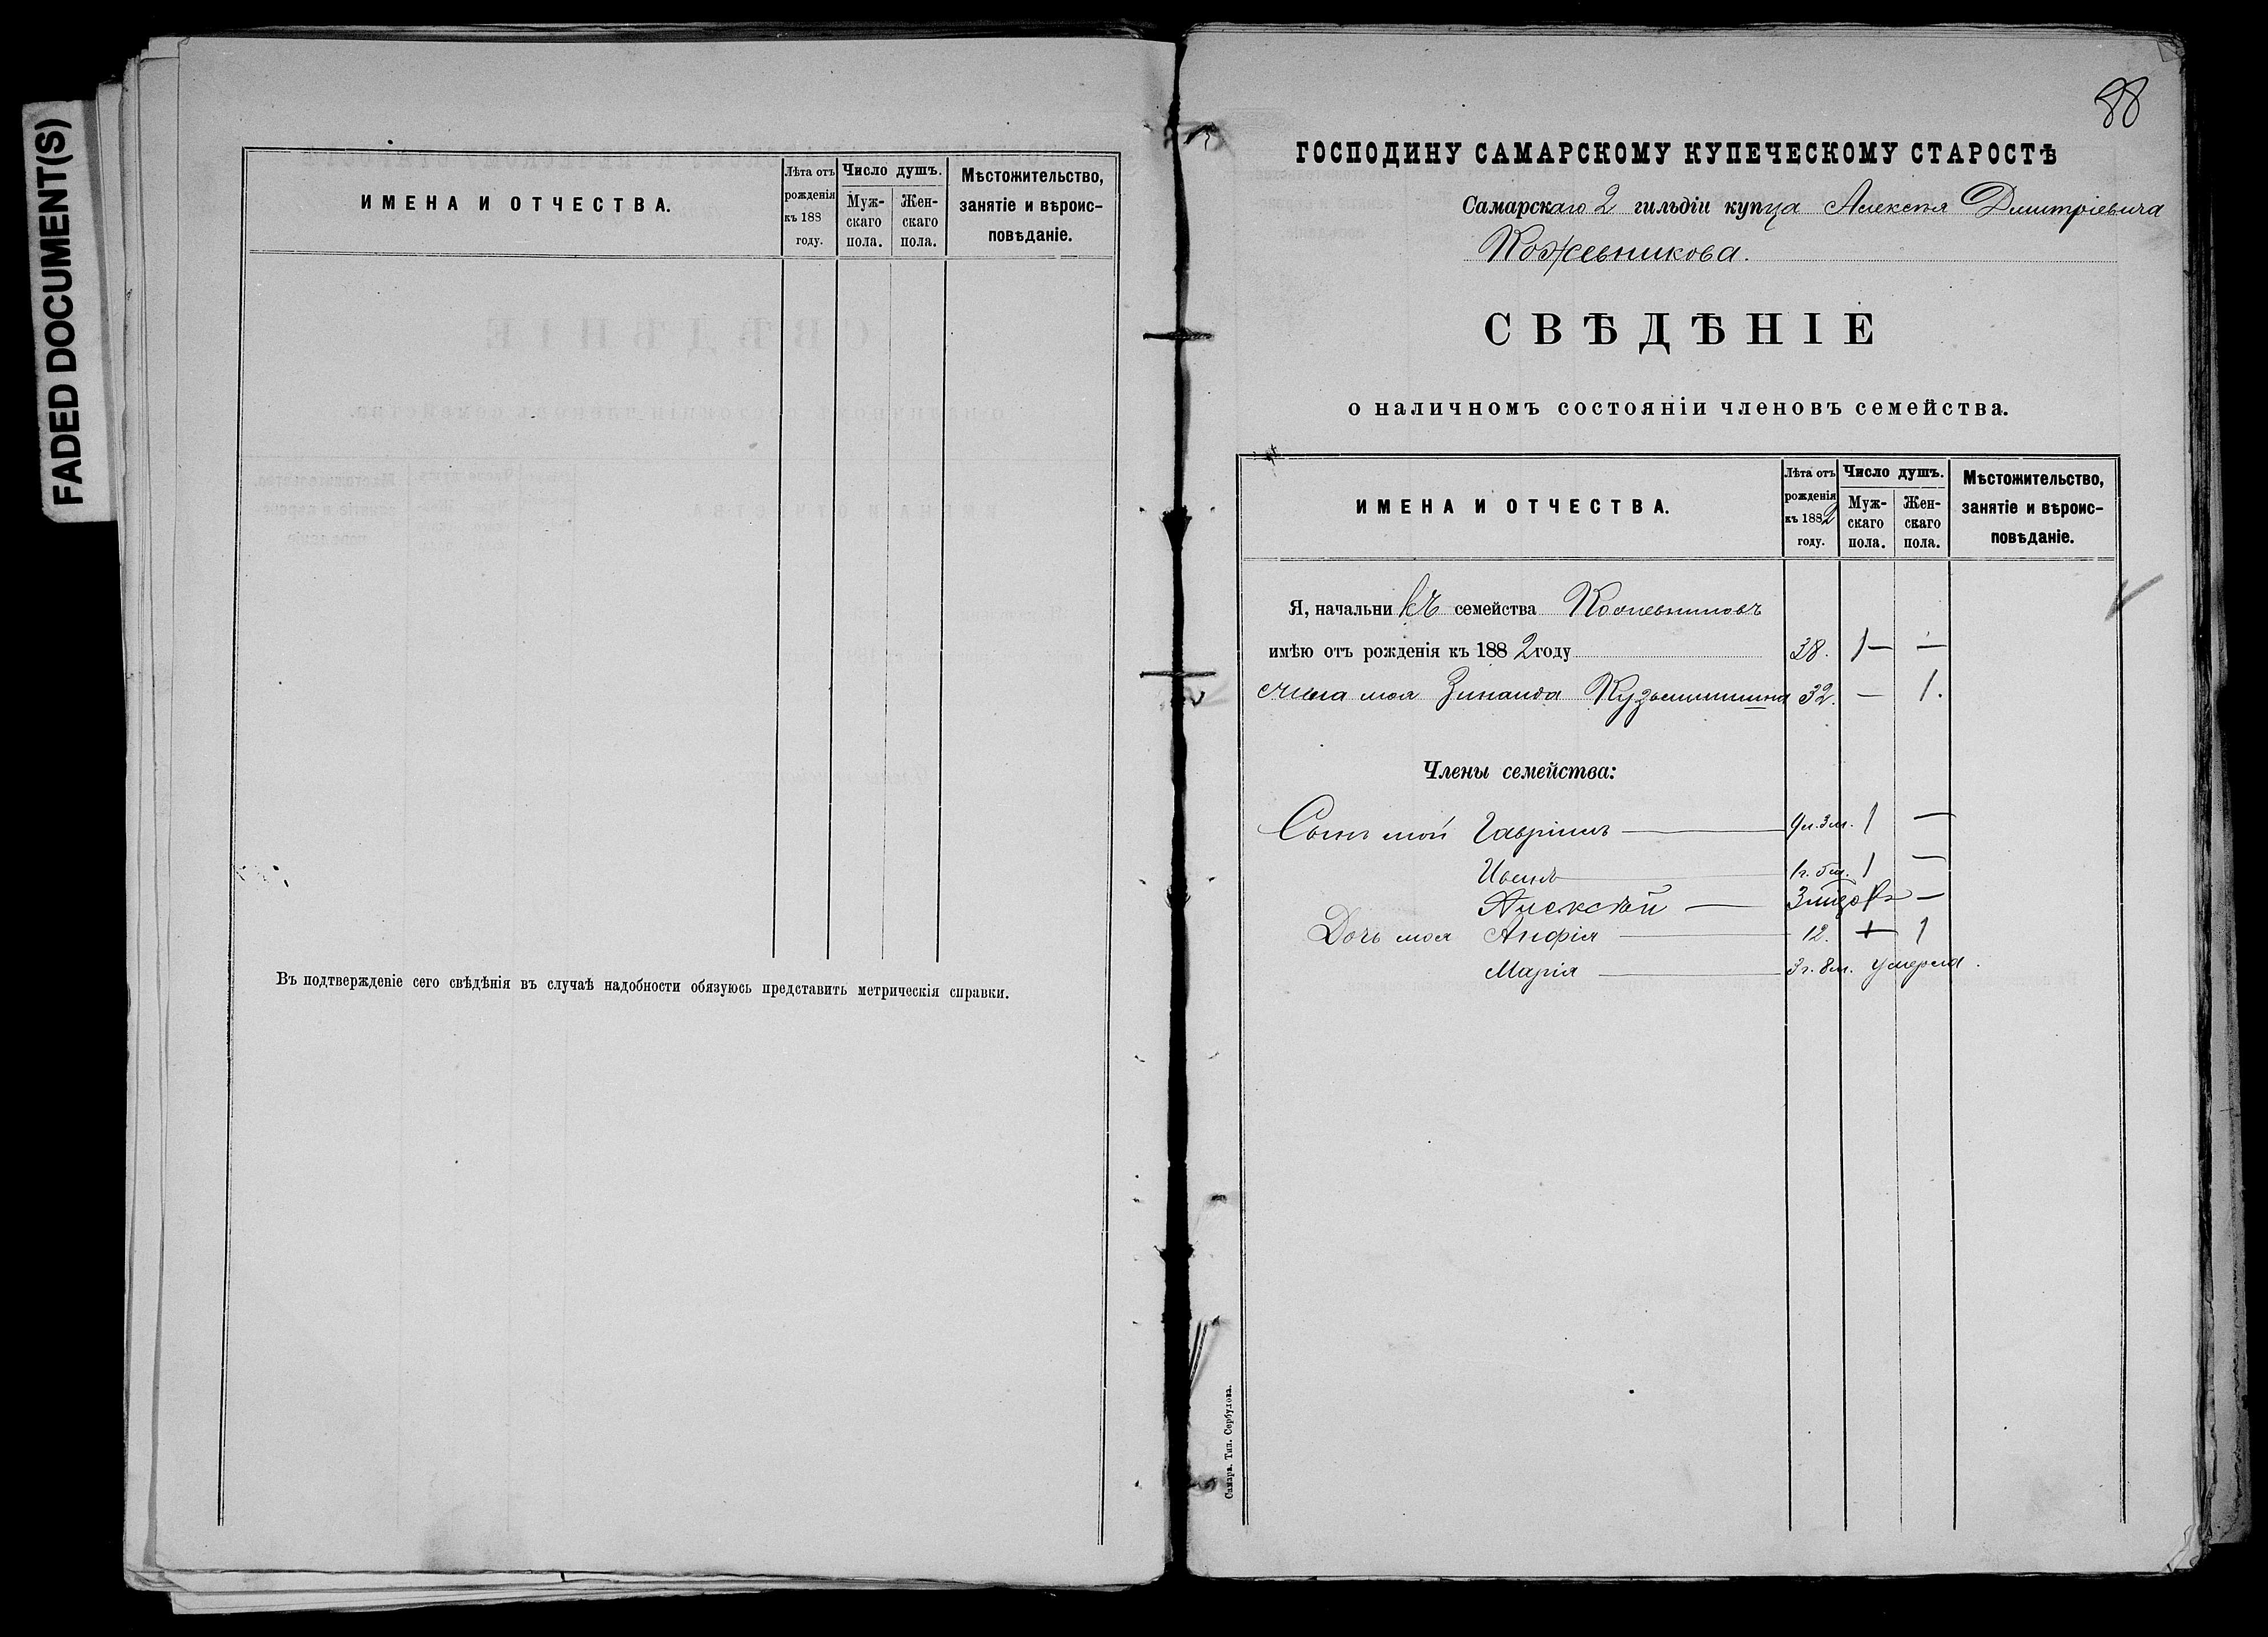 FADED DOCUMENT(S)
ИМЕНА И ОТЧЕСТВА.
Лѣта отъ рожденія къ 188 году.
Число душъ.
Мужскаго пола.
Женскаго пола.
Мѣстожительство, занятіе и вѣроисповѣданіе.
Въ подтвержденіе сего свѣдѣнія въ случаѣ надобности обязуюсь представить метрическія справки.
88
ГОСПОДИНУ САМАРСКОМУ КУПЕЧЕСКОМУ СТАРОСТѢ
Самарскаго 2 гильдіи купца Алексѣя Дмитріевича
Кожевникова.
СВѢДѢНІЕ
о наличномъ состояніи членовъ семейства.
ИМЕНА И ОТЧЕСТВА.
Лѣта отъ рожденія къ 1882 году.
Число душъ.
Мужскаго пола.
Женскаго пола.
Мѣстожительство, занятіе и вѣроисповѣданіе.
Я, начальникъ семейства Кожевниковъ
имѣю отъ рожденія къ 1882 году 38. 1 — —
жена моя Зинаида 32. — 1.
Члены семейства:
Сынъ мой Гавріилъ — 1 —
1 —
Алексѣй — —
Дочь моя Анфія — 12. 1
Марія — 3 г. 8 м. умерла.
Самара. Тип. Сербулова.